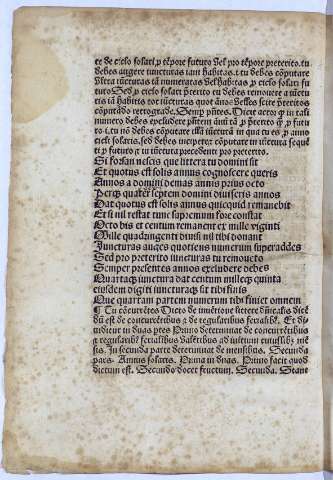 re de ciclo solari ꝓ tēpore futuro vel pro tempore preterito. tu
debes augere iuncturas iam habitas. i. tu debes cōputare
vltra iūcturas tā numeratas vel habitas ꝓ ciclo solari fu
turo Sed ꝓ ciclo solari preterito tu debes remouere a iūctu
ris iā habitis tot iūcturas quot āños velles scire preteritos
cōputādo retrograde.
numero debes excludere pñtem
ro
cicli solaris, sed debes incipere cōputare in iūctura
ti ꝓ futuro in iūctura precedenti pro preterito.
Si forsan nescis que littera tu domini sit
Et quotus est solis annus cognoscere queris
Annos a domini demas annis prius octo
Perꝗ quater septem domini diuiseris annos
Dat quotus est solis annus quicquid remanebit
Et si nil restat tunc supremum fore constat
Octo bis et centum remanent ex mille viginti
Mille quadringenti diuisi nil tibi donant
Iuncturas auges quoticus numerum superaddes
Sed pro preterito iuncturas tu remoueto
Semper presentes annos excludere debes
Quartaꝗ iunctura dat centum milleꝗ quinta
eiusdem digiti iuncturaꝗ sit tibi finis
Que quartam partem numerum tibi finiet omnem
¶ Tu cōcurrētes Dicto de inuētione littere dñicalis dicē
dū est de concurrētibus ⁊ de regularibus ferialibꝰ. Et di
uiditur in duas ptes Primo determinat de concurrētibus
⁊ regularibꝰ ferialibus
sis. In secunda parte determinat de mensibus. Secunda
pars. Annus solaris. Prima in duas. Primo facit quod
dictum est. Secundo docet fructum. Secunda. Stant